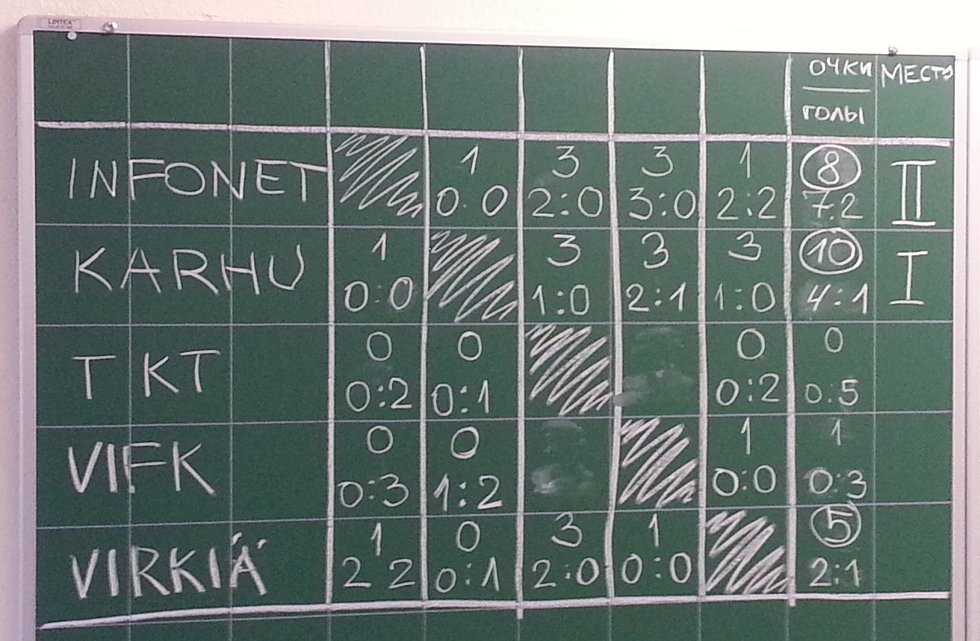 ОЧКИ МЕСТО
ГОЛЫ
INFONET 1 3 3 1 8 II
0:0 2:0 3:0 2:2 7:2
KARHU 1 3 3 3 10 I
0:0 1:0 2:1 1:0 4:1
TKT 0 0 0 0
0:2 0:1 0:2 0:5
VIFK 0 0 1 1
0:3 1:2 0:0 0:3
VIRKIÄ 1 0 3 1 5
2 2 0:1 2:0 0:0 2:1